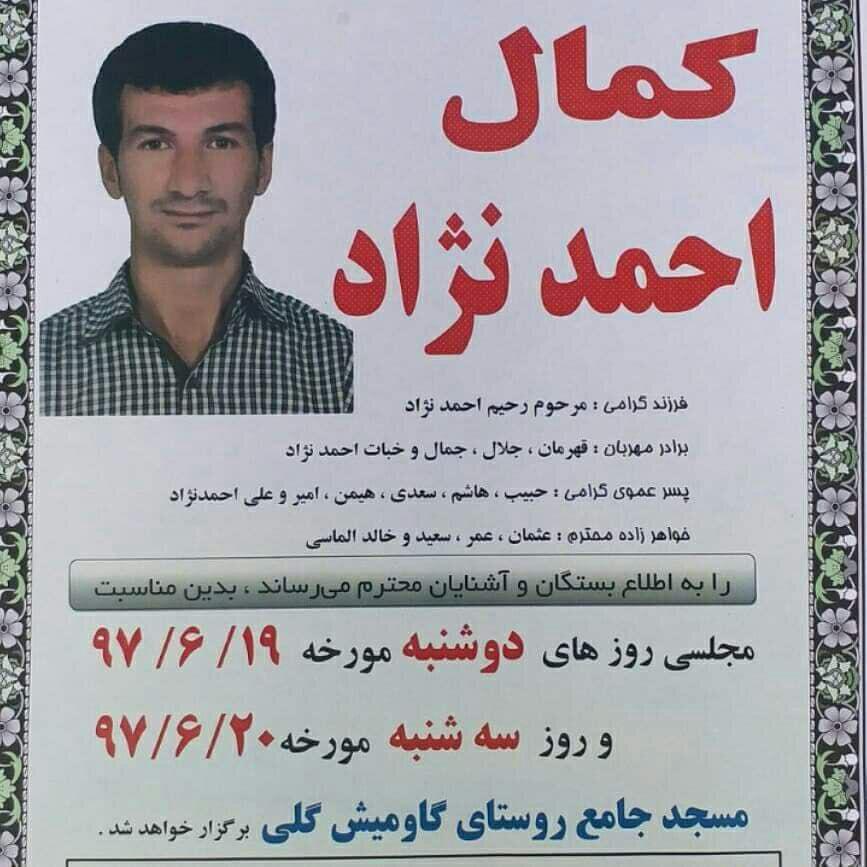 کمال
احمد نژاد
فرزند گرامی : مرحوم رحیم احمد نژاد
برادر مهربان : قهرمان ، جلال ، جمال و خبات احمد نژاد
پسر عموی گرامی : حبیب ، هاشم ، سعدی ، هیمن ، امیر و علی احمدنژاد
خواهر زاده محترم : عثمان ، عمر ، سعید و خالد الماسی
را به اطلاع بستگان و آشنایان محترم می‌رساند ، بدین مناسبت
مجلسی روز های دوشنبه مورخه ۹۷/۶/۱۹
و روز سه شنبه مورخه ۹۷/۶/۲۰
مسجد جامع روستای گاومیش گلی برگزار خواهد شد .